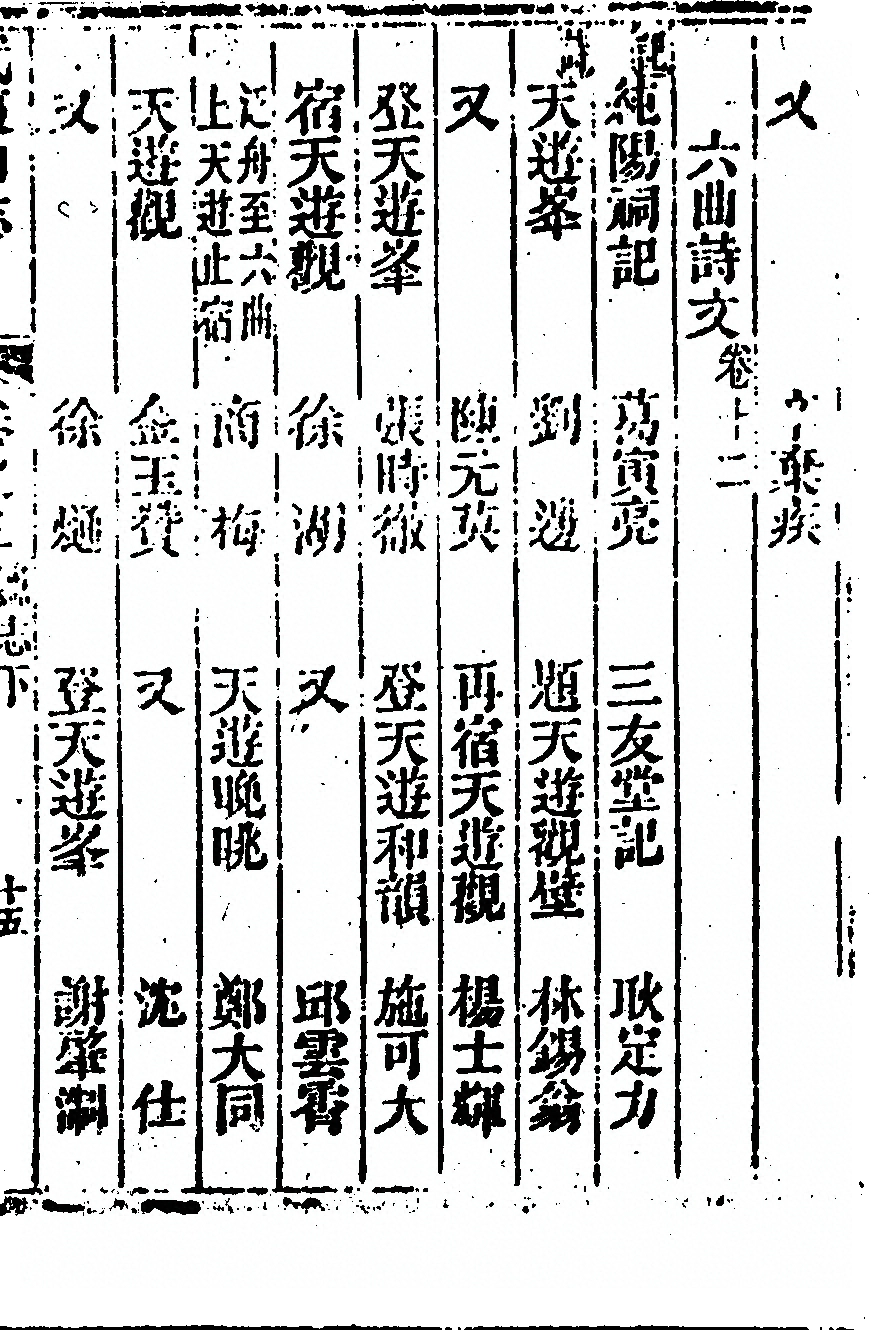 又　辛棄疾
六曲詩文卷十二
記　純陽祠記　葛寅亮　三友堂記　耿定力
詩　天遊峯　劉邊　題天遊觀壁　林錫翁
又　陳元英　再宿天遊觀　楊士輝
登天遊峯　張時徹　登天遊和韻　施可大
宿天遊觀　徐湖　又　邱雲霄
泛舟至六曲上天遊止宿　商梅　天遊晚眺　鄭大同
天遊觀　金玉贊　又　沈仕
又　徐𤊹　登天遊峯　謝肇淛
志下　十五